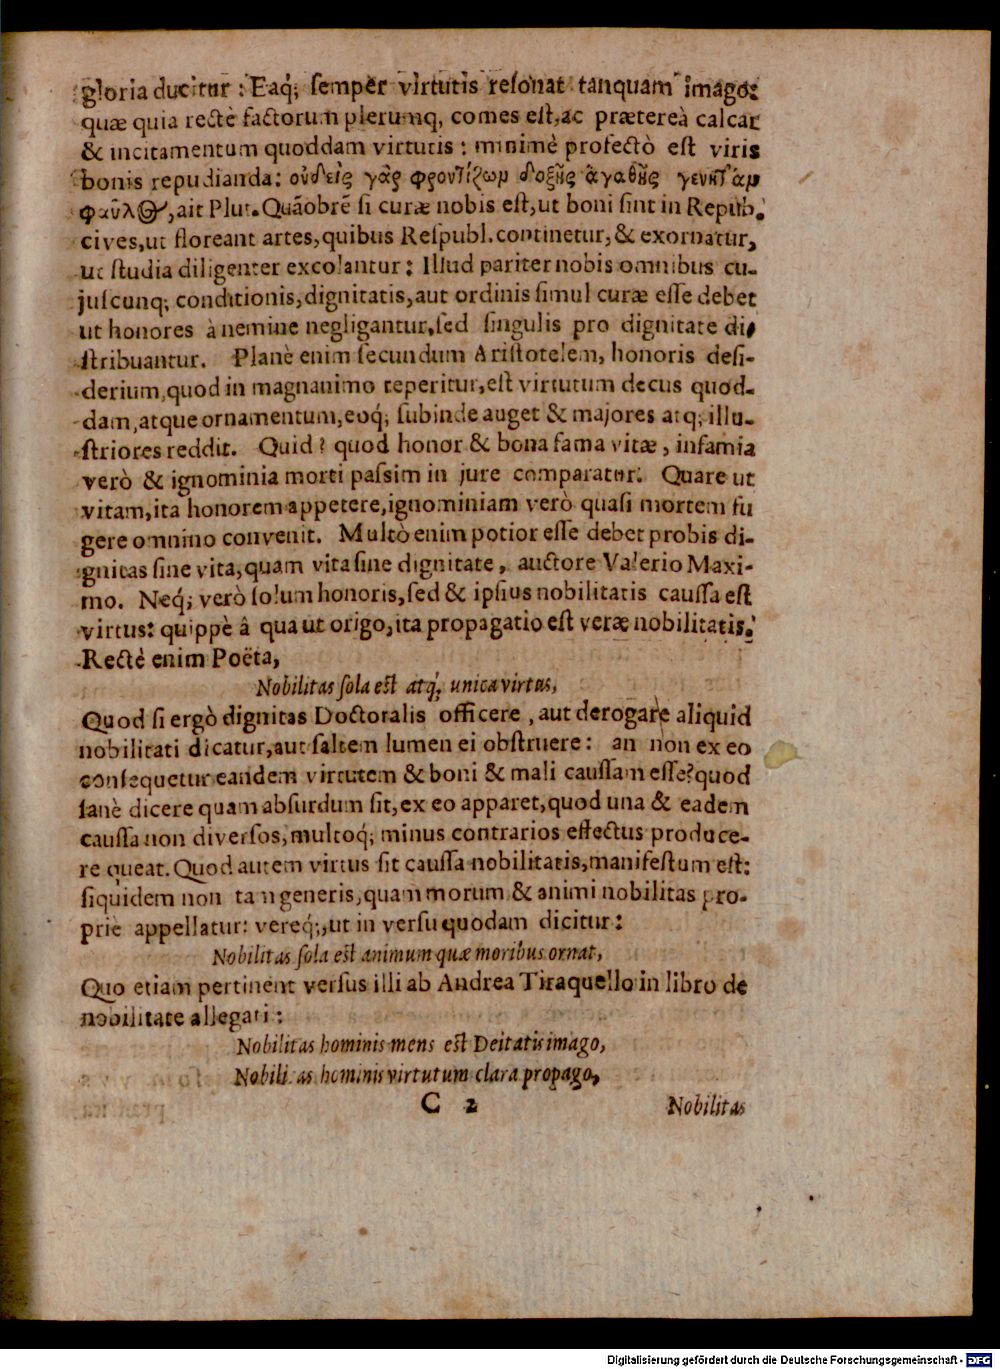 gloria ducitur: Eaq́; semper virtutis resonat tanquam imago:
quæ quia rectè factorum plerumq, comes est, ac prætereà calcar
& incitamentum quoddam virtutis: minimè profectò est viris
bonis repudianda: οὐδεὶς γὰρ φροντίζων δοξῆς ἀγαθῆς
φαῦλος, ait Plut. Quãobrẽ si curæ nobis est, ut boni sint in Repub.
cives, ut floreant artes, quibus Respubl. continetur, & exornatur,
ut studia diligenter excolantur: Illud pariter nobis omnibus cu-
juscunq; conditionis, dignitatis, aut ordinis simul curæ esse debet
ut honores à nemine negligantur, sed singulis pro dignitate di-
stribuantur. Planè enim secundum Aristotelem, honoris desi-
derium, quod in magnanimo reperitur, est virtutum decus quod-
dam, atque ornamentum, eoq́; subinde auget & majores atq; illu-
striores reddit. Quid? quod honor & bona fama vitæ, infamia
verò & ignominia morti passim in jure comparatur. Quare ut
vitam, ita honorem appetere, ignominiam verò quasi mortem fu
gere omnino convenit. Multò enim potior esse debet probis di-
gnitas sine vita, quam vita sine dignitate, auctore Valerio Maxi-
mo. Neq́; verò solum honoris, sed & ipsius nobilitatis caussa est
virtus: quippè â qua ut origo, ita propagatio est veræ nobilitatis.
Rectè enim Poëta,
Nobilitas sola est atq́; unica virtus,
Quod si ergò dignitas Doctoralis officere, aut derogare aliquid
nobilitati dicatur, aut saltem lumen ei obstruere: an non ex eo
consequetur eandem virtutem & boni & mali caussam esse? quod
sanè dicere quam absurdum sit, ex eo apparet, quod una & eadem
caussa non diversos, multoq́; minus contrarios effectus produce-
re queat. Quod autem virtus sit caussa nobilitatis, manifestum est:
siquidem non tam generis, quam morum & animi nobilitas pro-
priè appellatur: vereq́;, ut in versu quodam dicitur:
Nobilitas sola est animum quæ moribus ornat,
Quo etiam pertinent versus illi ab Andrea Tiraquello in libro de
nobilitate allegati:
Nobilitas hominis mens est Deitatis imago,
Nobilitas hominis virtutum clara propago,
C 2 Nobilitas
Digitalisierung gefördert durch die Deutsche Forschungsgemeinschaft - DFG